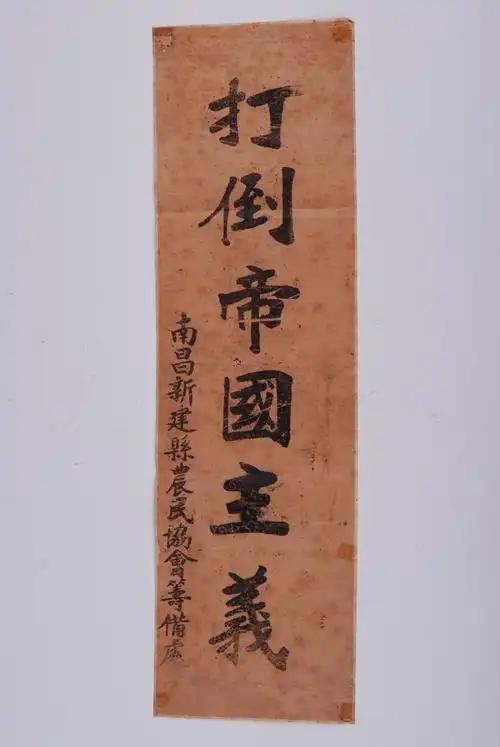 打倒帝國主義
南昌新建縣農民協會籌備處